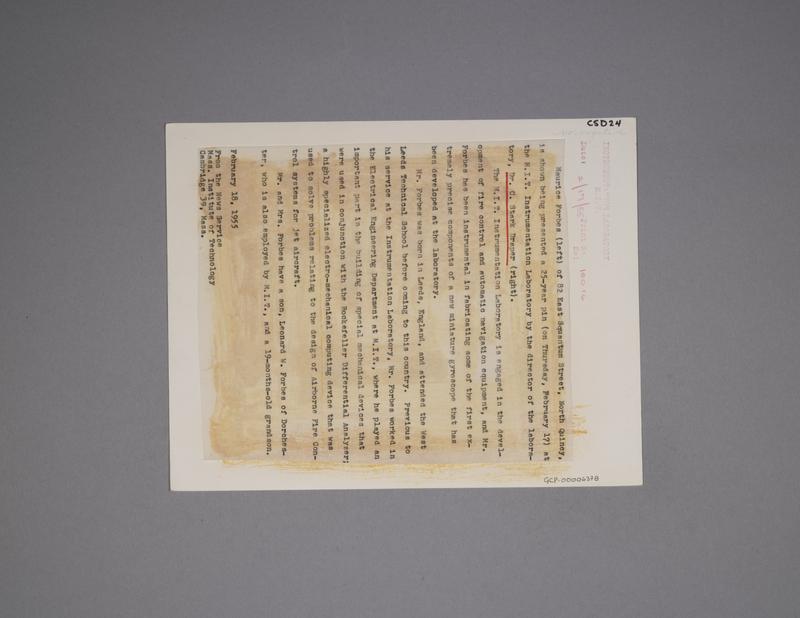 CSD24
Maurice Forbes (left) of 82 East Squantum Street, North Quincy,
is shown being presented a 25-year pin (on Thursday, February 17) at
the M.I.T. Instrumentation Laboratory by the director of the labora-
tory, Dr. C. Stark Draper (right).
The M.I.T. Instrumentation Laboratory is engaged in the devel-
opment of fire control and automatic navigation equipment, and Mr.
Forbes has been instrumental in fabricating some of the first ex-
tremely precise components of a new miniature gyroscope that has
been developed at the laboratory.
Mr. Forbes was born in Leeds, England, and attended the West
Leeds Technical School before coming to this country. Previous to
his service at the Instrumentation Laboratory, Mr. Forbes worked in
the Electrical Engineering Department at M.I.T., where he played an
important part in the building of special mechanical devices that
were used in conjunction with the Rockefeller Differential Analyzer;
a highly specialized electro-mechanical computing device that was
used to solve problems relating to the design of Airborne Fire Con-
trol systems for jet aircraft.
Mr. and Mrs. Forbes have a son, Leonard W. Forbes of Dorches-
ter, who is also employed by M.I.T., and a 19-months-old grandson.
February 18, 1955
From the News Service
Mass. Institute of Technology
Cambridge 39, Mass.
GCP-00006378